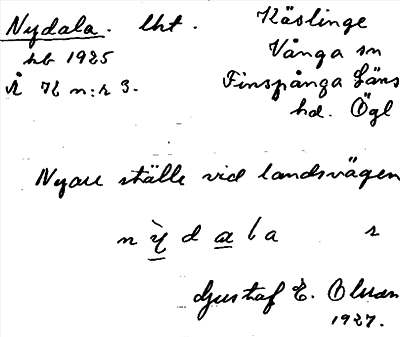 Nydala. lht. Käslinge
hb 1925 Vånga sn
Å K n:r 3. Finspånga Läns
hd. Ögl
Nyare ställe vid landsvägen
n ỳ̲ d a̲ l a r
Gustaf E. Olsson
1927.